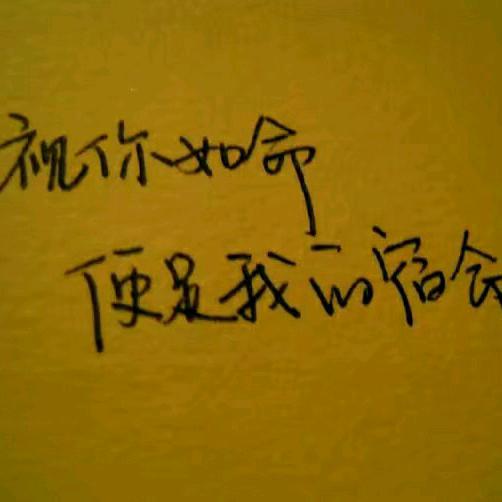 视你如命
便是我的宿命